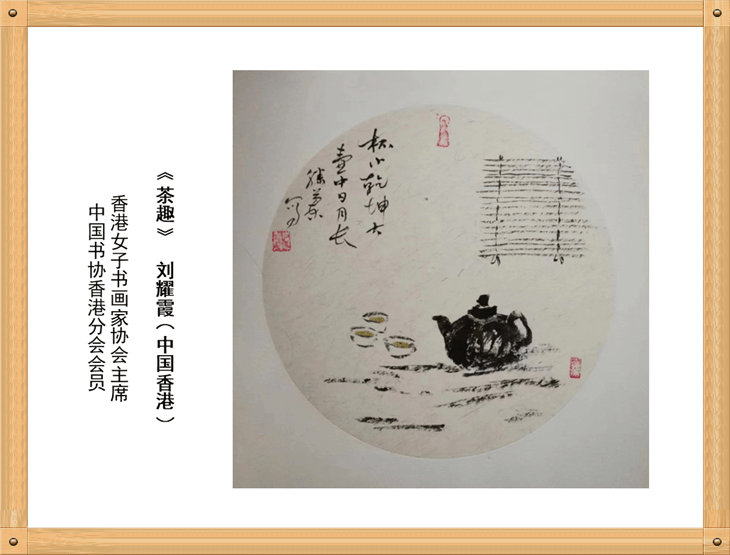 杯小乾坤大
壶中日月长
《茶趣》 刘耀霞（中国香港）
香港女子书画家协会主席
中国书协香港分会会员